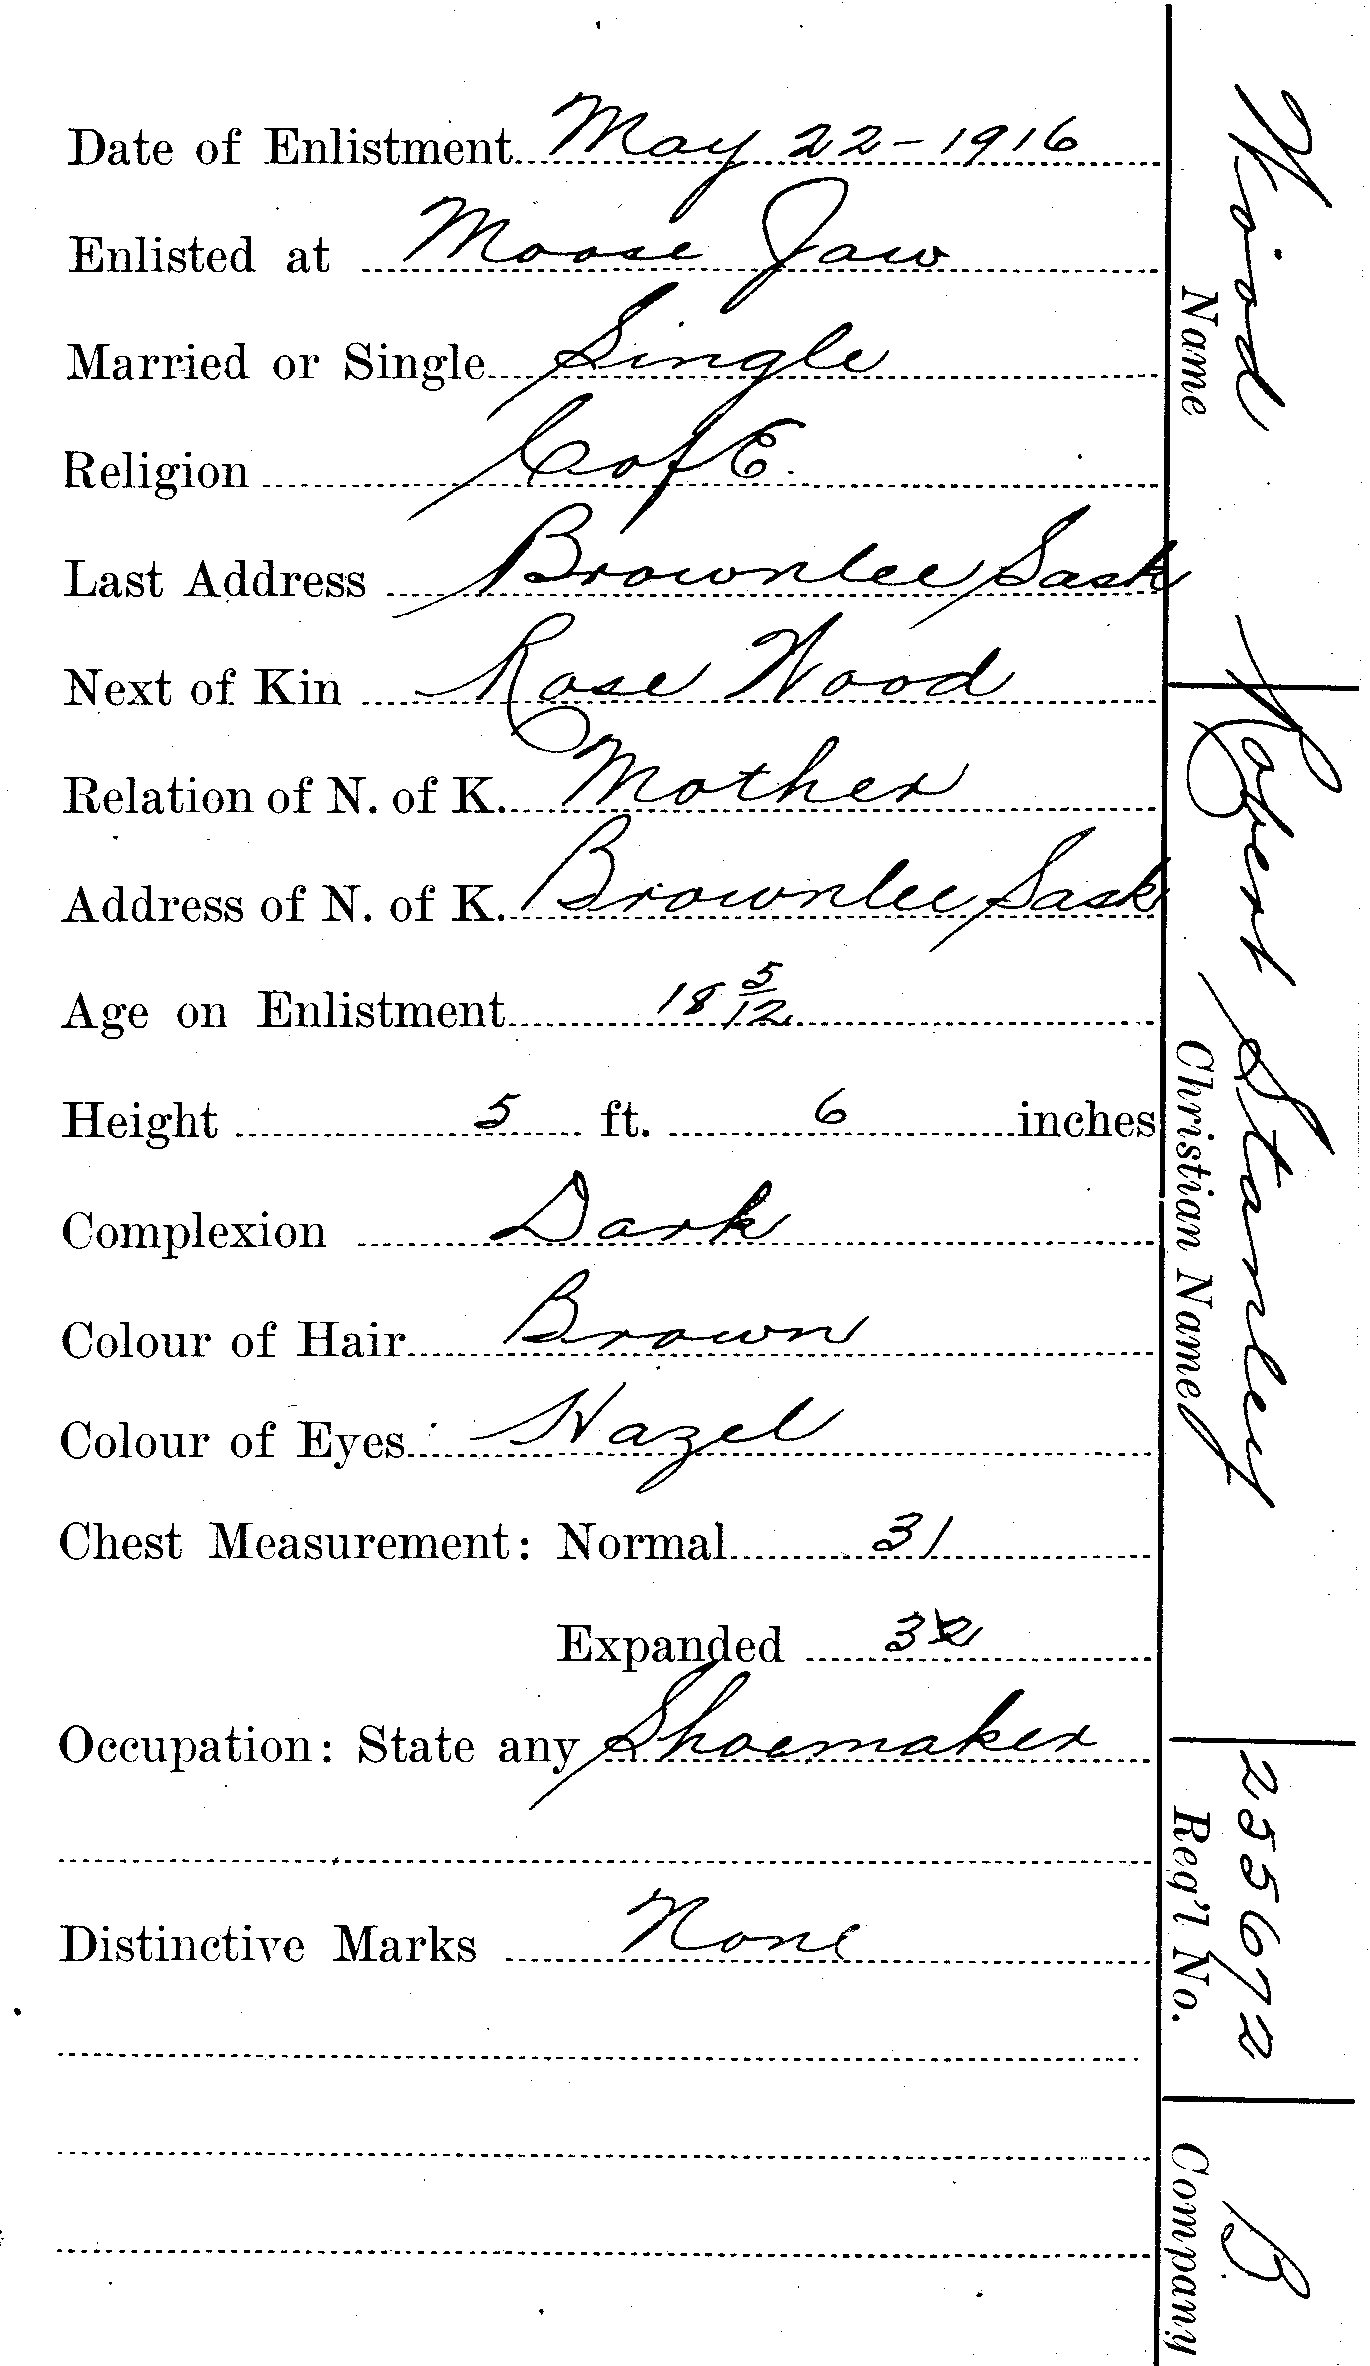 Date of Enlistment May 22 - 1916
Enlisted at Moose Jaw
Married or Single Single
Religion C of E.
Last Address Brownlee Sask
Next of Kin Rose Wood
Relation of N. of K. Mother
Address of N. of K. Brownlee Sask
Age on Enlistment 18 5/12
Height 5 ft. 6 inches
Complexion Dark
Colour of Hair Brown
Colour of Eyes Hazel
Chest Measurement: Normal 31
Expanded 32
Occupation: State any Shoemaker
Distinctive Marks None
Wood Robert Stanley 255672 B
Name Christian Name Reg'l No. Company